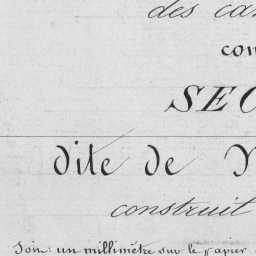 des
SEC
dite de
construit
Soin: un millimètre sur le papier